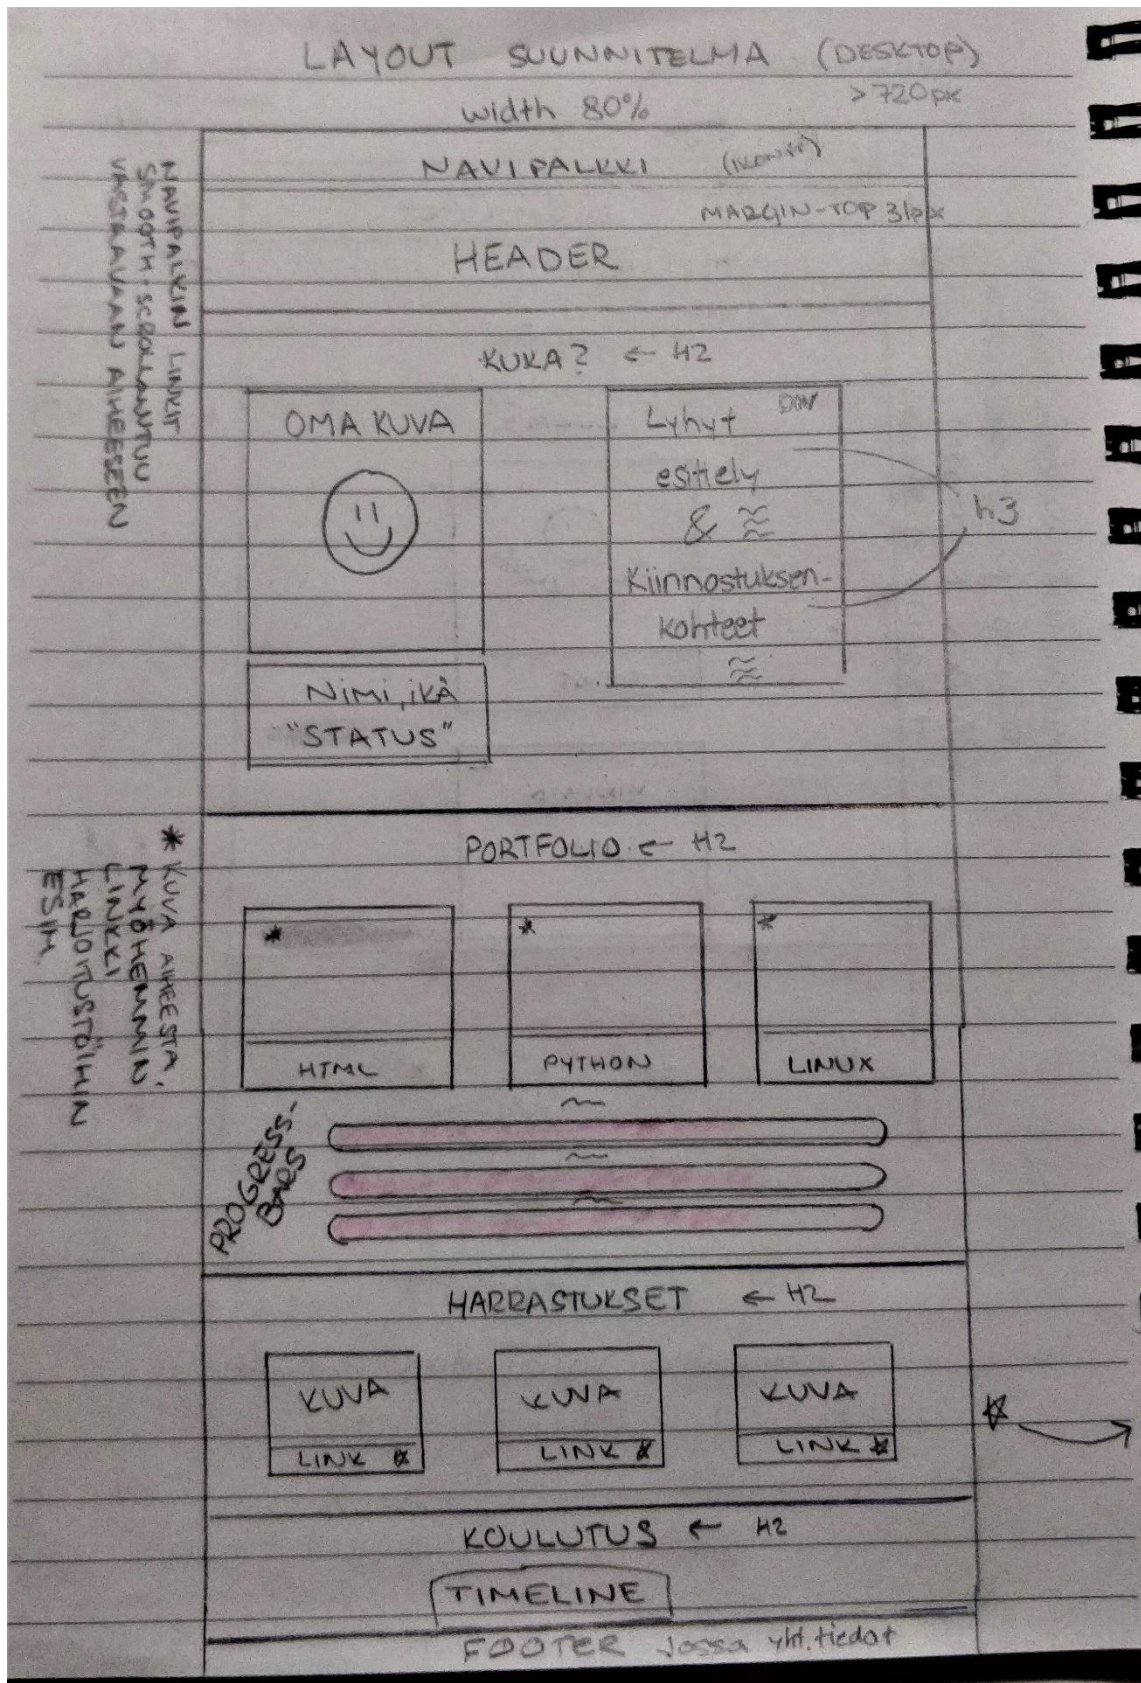 LAYOUT SUUNNITELMA (DESKTOP)
>720px
width 80%
NAVIPALKKI
MARGIN-TOP 31px
HEADER
NAVIPALKIN LINKIT
SMOOTH-SCROLLAANTUU
VASTAAVAAN AIHEESEEN
KUKA? ← H2
OMA KUVA
NIMI, IKÄ
"STATUS"
DIV
Lyhyt
esittely
&
Kiinnostuksen-
kohteet
h3
PORTFOLIO ← H2
* KUVA AIHEESTA,
MYÖHEMMIN
LINKKI
HARJOITUSTÖIHIN
ESIM.
* * *
HTML PYTHON LINUX
PROGRESS-
BARS
HARRASTUKSET ← H2
KUVA KUVA KUVA
LINK ☆ LINK ☆ LINK ☆
☆ →
KOULUTUS ← H2
TIMELINE
FOOTER jossa yht.tiedot